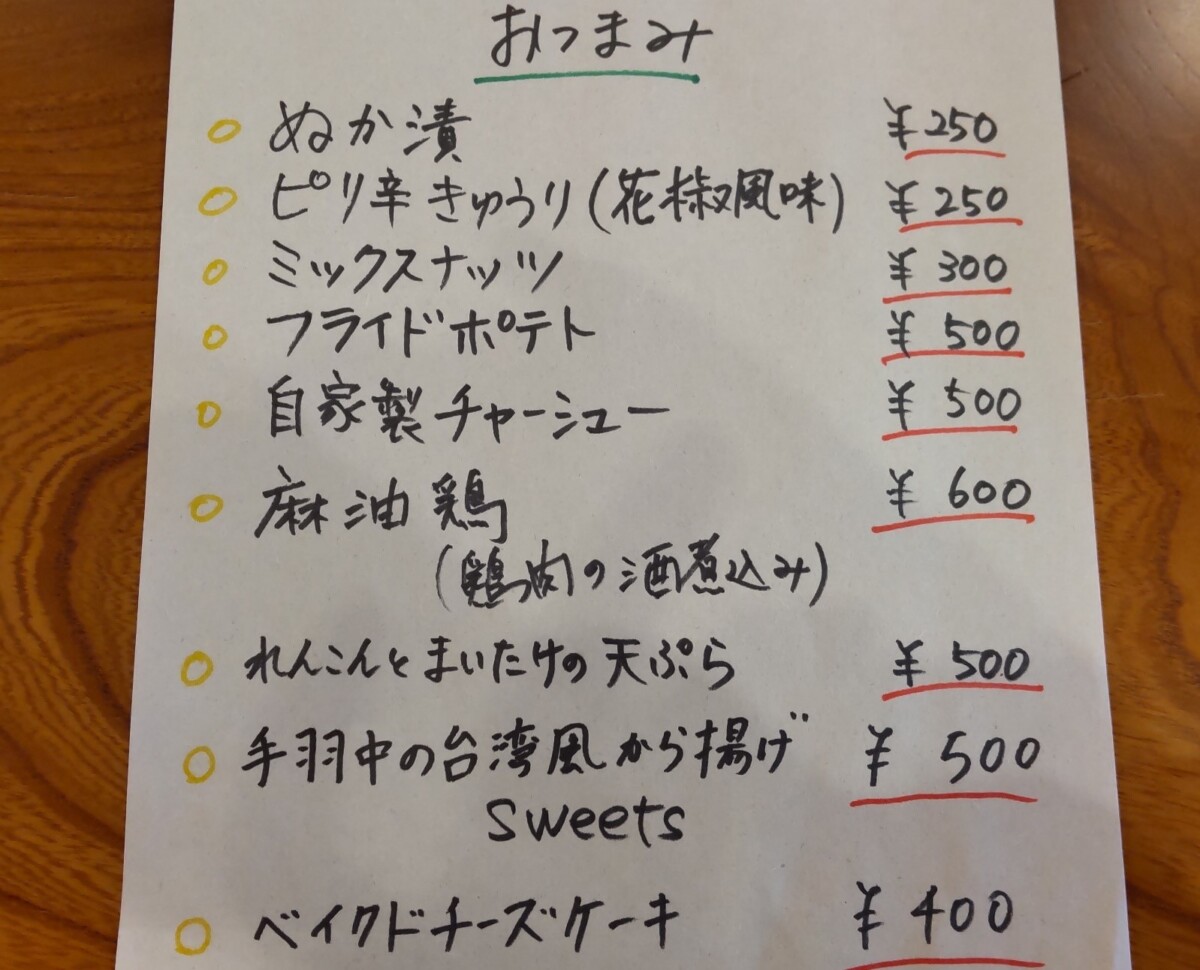 おつまみ
○ ぬか漬 ¥250
○ ピリ辛きゅうり(花椒風味) ¥250
○ ミックスナッツ ¥300
○ フライドポテト ¥500
○ 自家製チャーシュー ¥500
○ 麻油鶏 ¥600
(鶏肉の酒煮込み)
○ れんこんとまいたけの天ぷら ¥500
○ 手羽中の台湾風から揚げ ¥500
sweets
○ ベイクドチーズケーキ ¥400